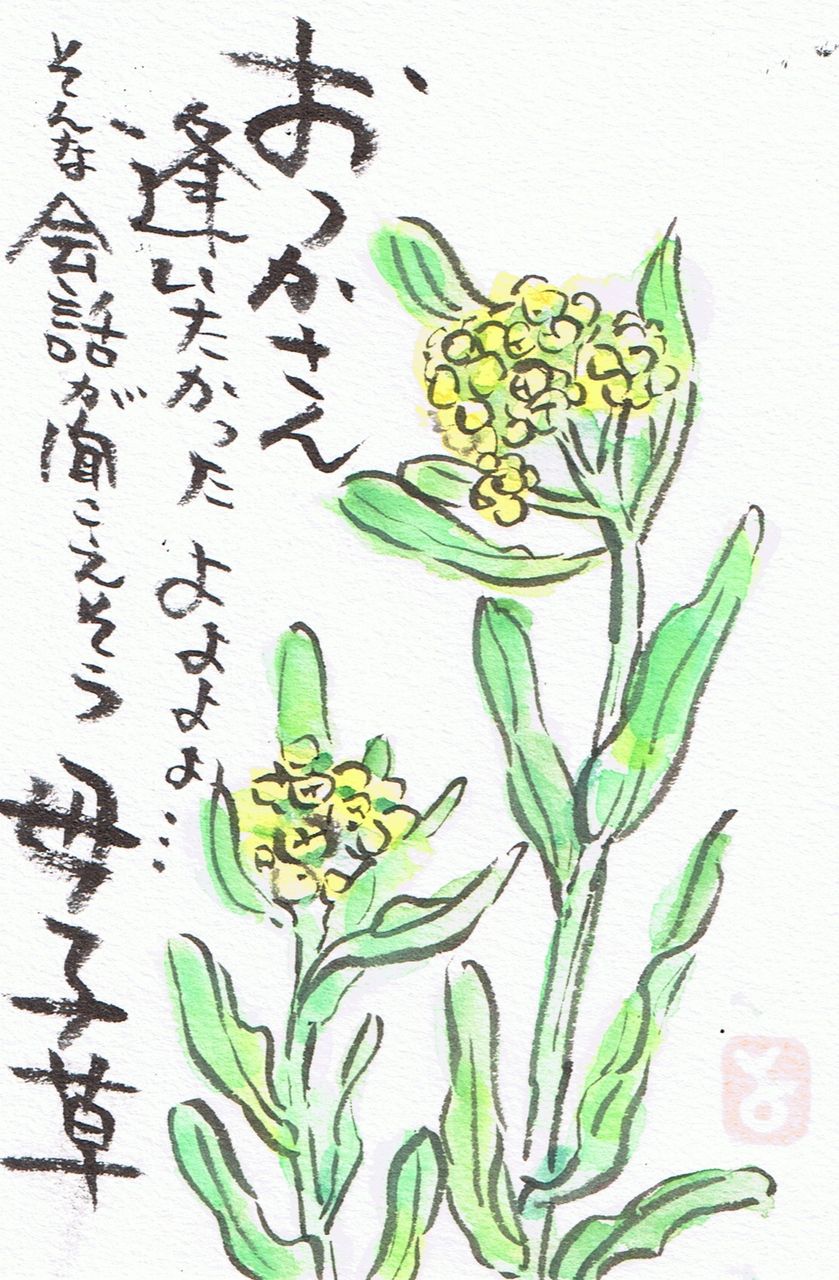 おっかさん
逢いたかった よよよよ…
そんな会話が聞こえそう 母子草